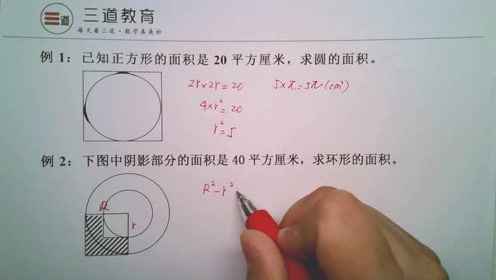 三道教育
每天看三道·数学真美妙
例 1：已知正方形的面积是 20 平方厘米，求圆的面积。
2r×2r=20 5×π=5π(cm²)
4×r²=20
r²=5
例 2：下图中阴影部分的面积是 40 平方厘米，求环形的面积。
R²-r²
R
r